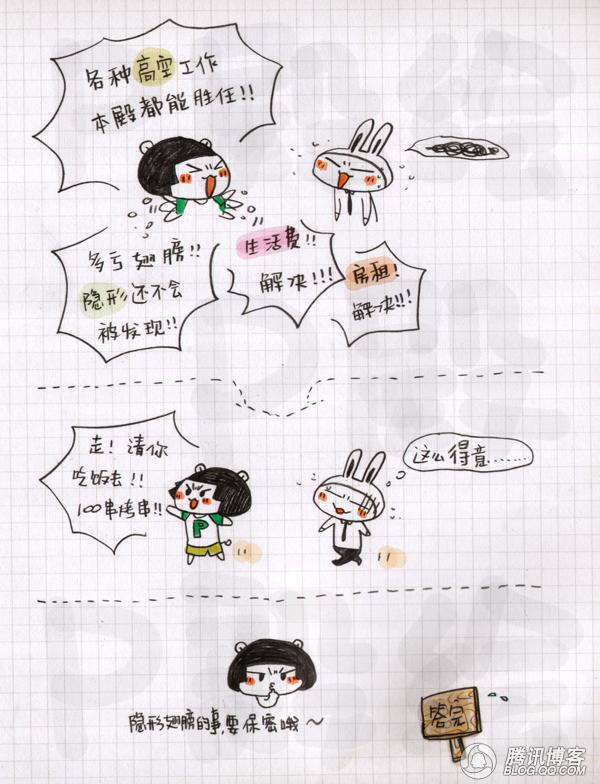 各种高空工作
本殿都能胜任!!
多亏翅膀!!
隐形还不会
被发现!!
生活费!!
解决!!!
房租!
解决!!!
走!请你
吃饭去!!
100串烤串!!
这么得意……
P
隐形翅膀的事,要保密哦~
答完
腾讯博客
BLOG.QQ.COM